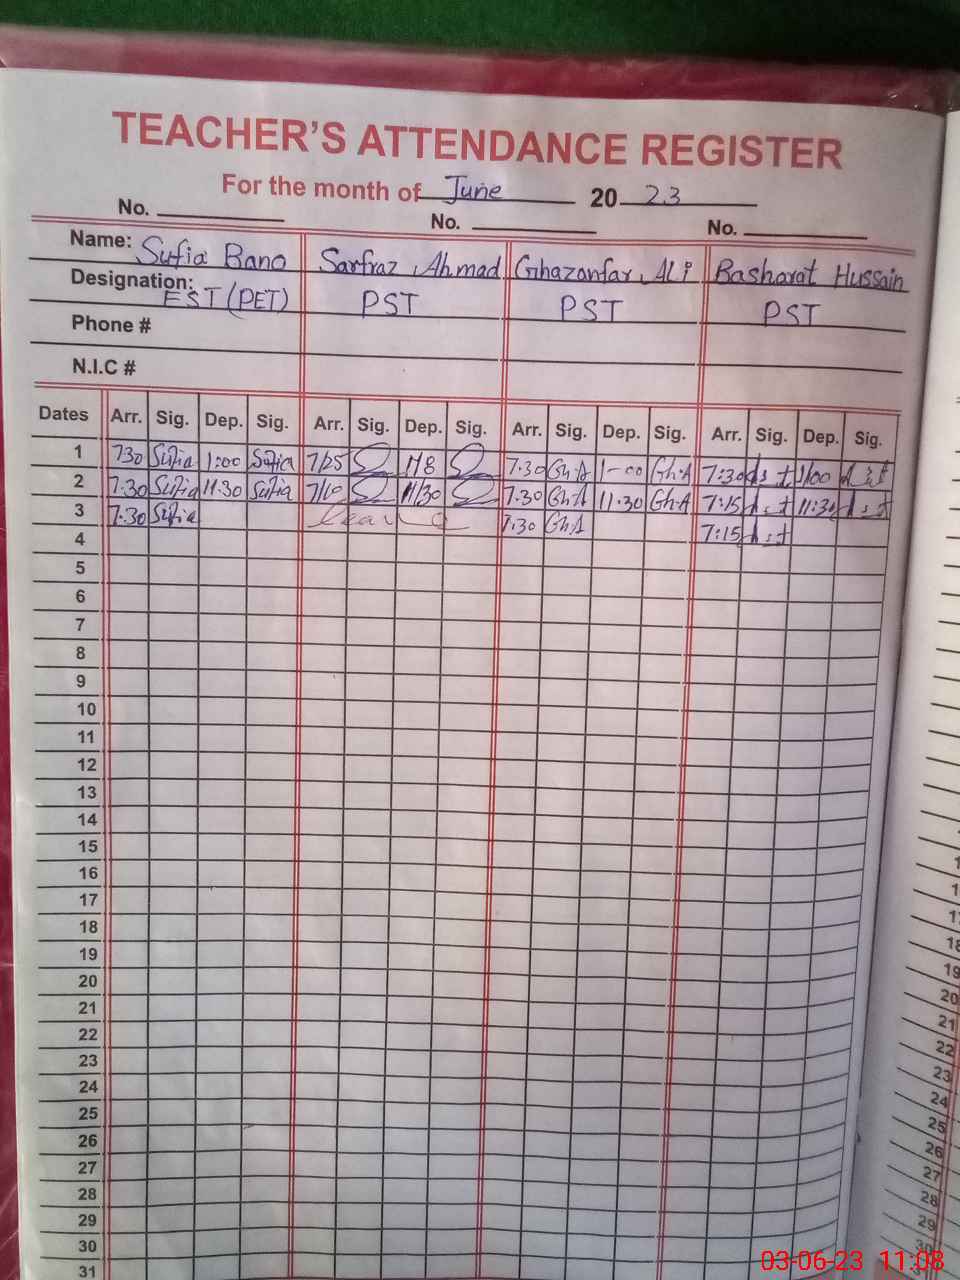 TEACHER'S ATTENDANCE REGISTER
For the month of June 20 23
No. No. No.
Name: Sufia Bano Sarfraz Ahmad Ghazanfar ALi Basharat Hussain
Designation: EST (PET) PST PST PST
Phone #
N.I.C #
Dates Arr. Sig. Dep. Sig. Arr. Sig. Dep. Sig. Arr. Sig. Dep. Sig. Arr. Sig. Dep. Sig.
1 730 Sufia 1:00 Sufia 7/25 7.30 Gh.A 1-00 Gh.A 7:30 1/00
2 7.30 Sufia 11.30 Sufia 7/10 11/30 7.30 Gh.A 11.30 Gh.A 7:15 11:30
3 7.30 Sufia leave 7.30 Gh.A 7:15
4
5
6
7
8
9
10
11
12
13
14
15
16
17
18
19
20
21
22
23
24
25
26
27
28
29
30
31
18
19
20
21
22
23
24
25
26
27
28
29
30
03-06-23 11:08